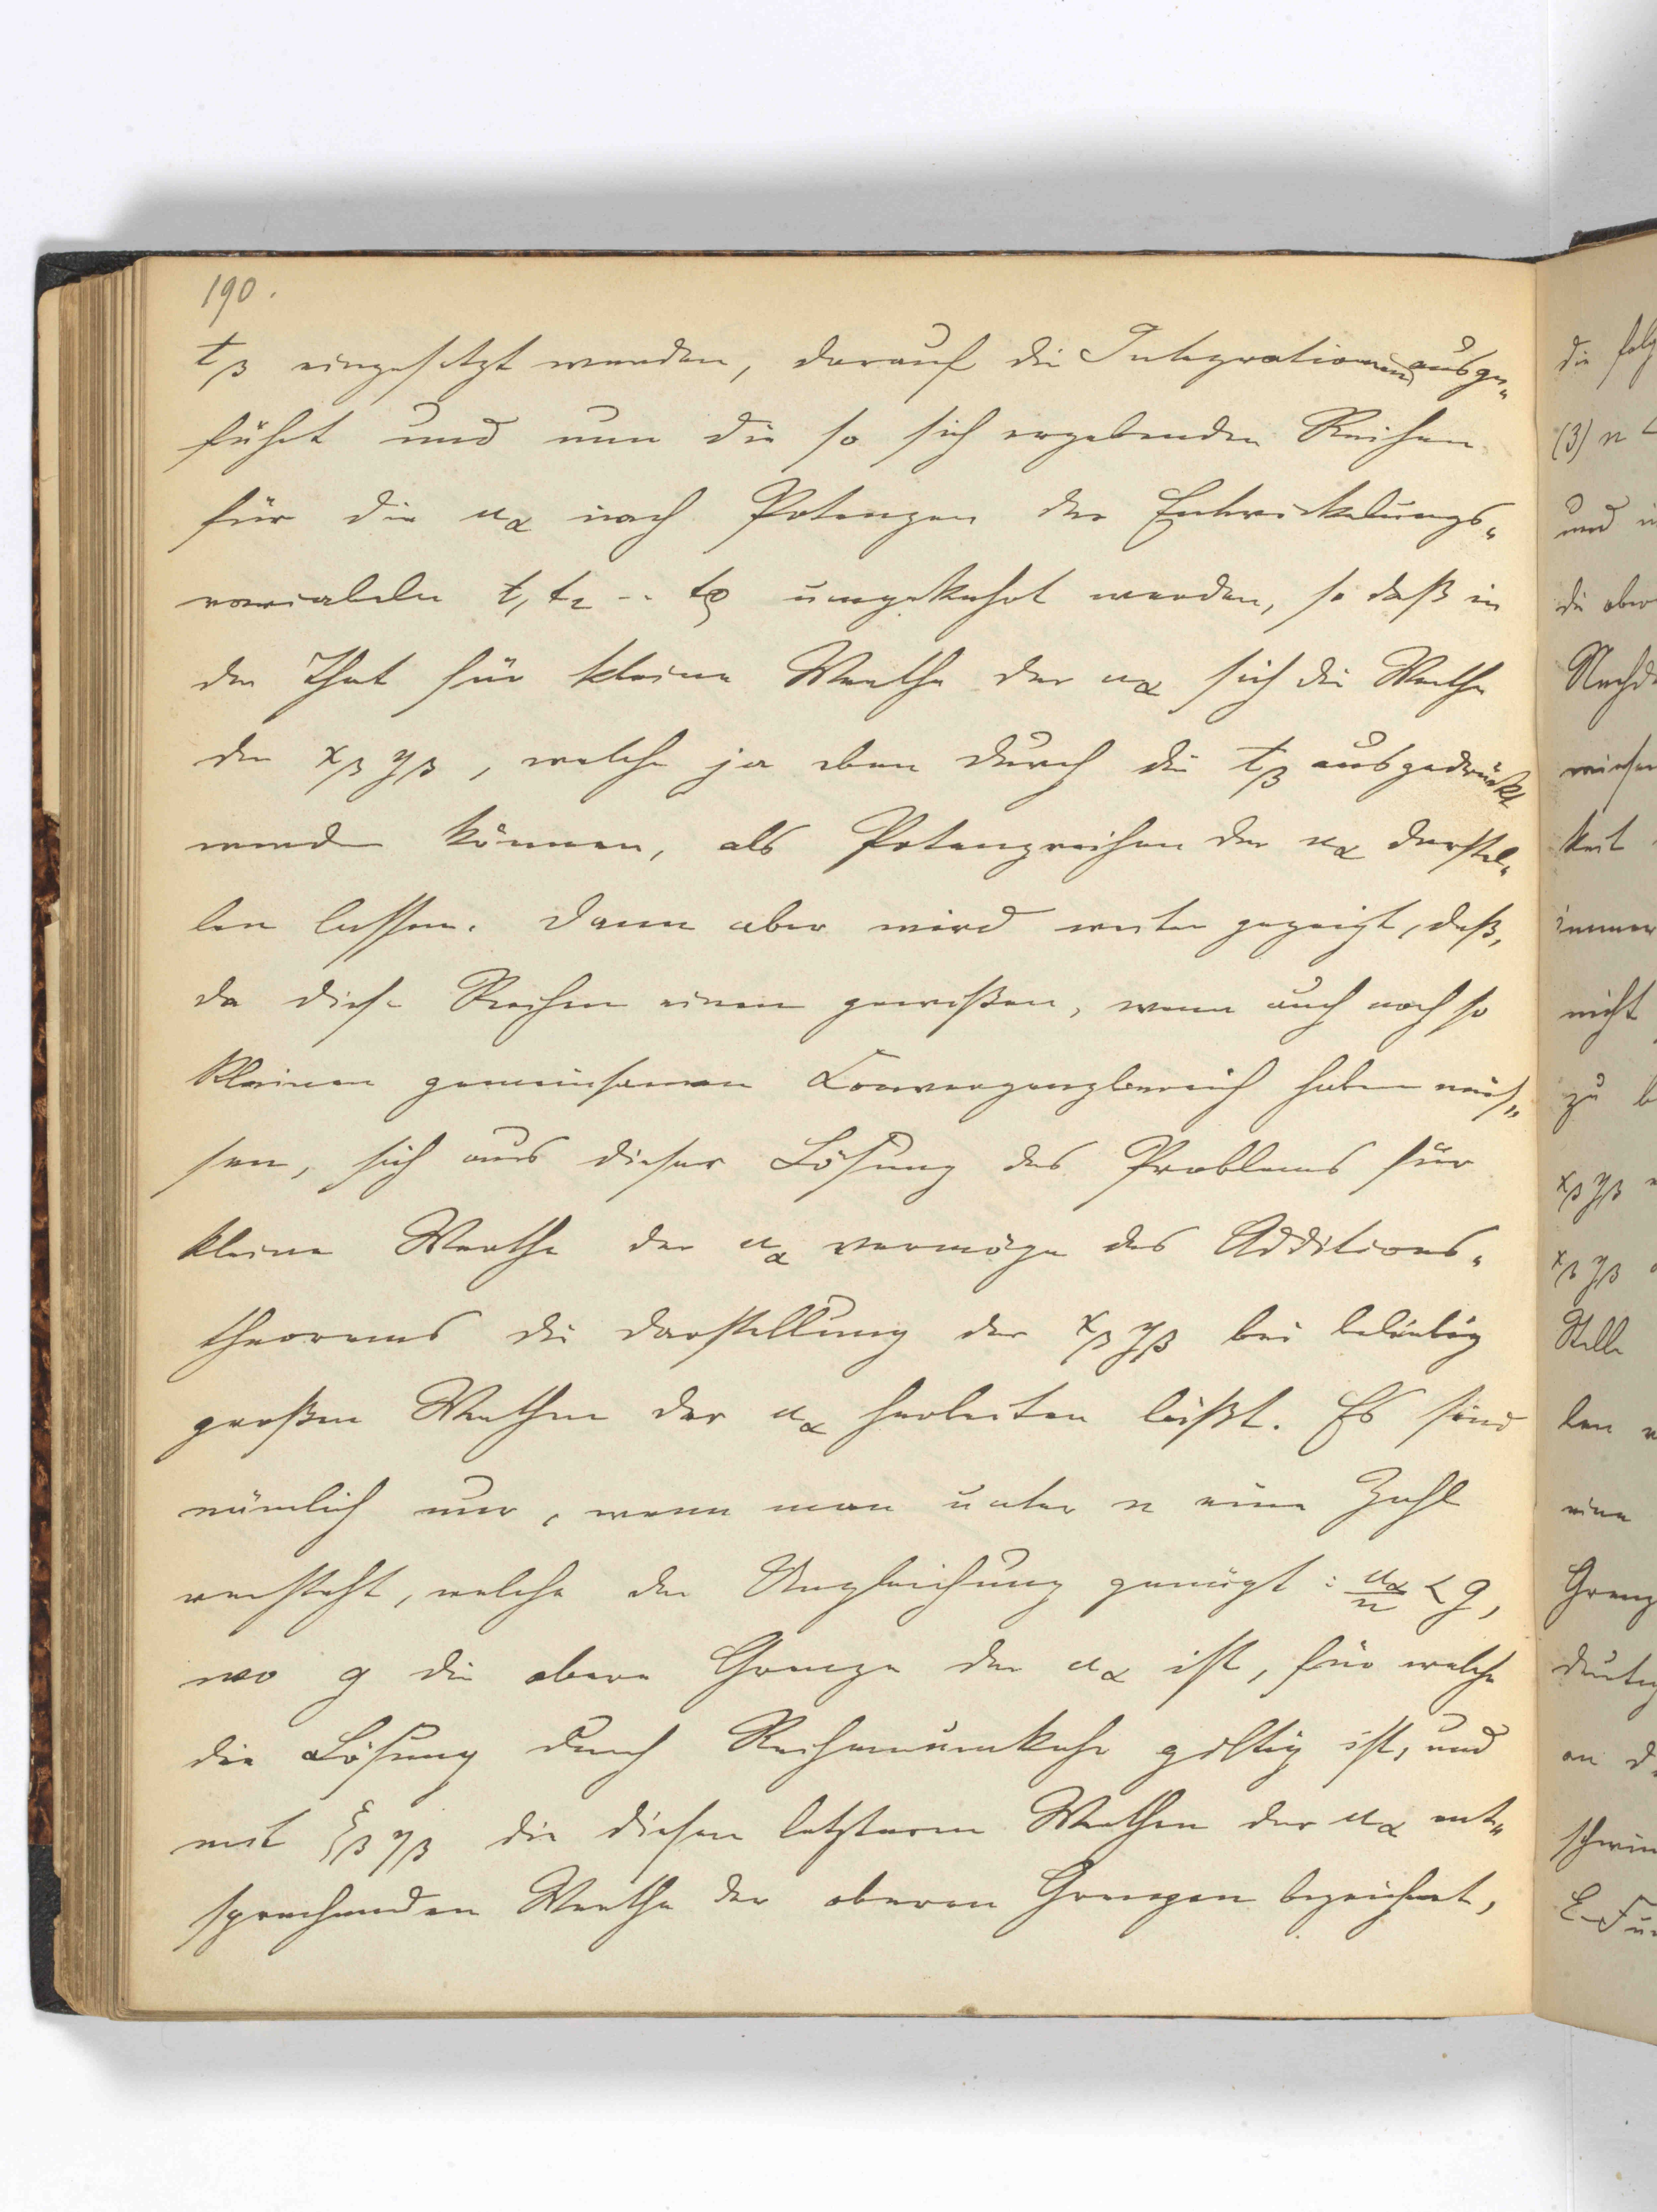 190.
t_β eingesetzt werden, darauf die Integrationen ausge„
führt und nun die so sich ergebenden Reihen
für die u_α nach Potenzen der Entwickelungs„
variabeln t_1 t_2 .. t_ρ umgekehrt werden, so daß in
der That für kleine Werthe der u_α sich die Werthe
der x_β y_β, welche ja eben durch die t_β ausgedrückt
werden können, als Potenzreihen der u_α darstel„
len lassen. Dann aber wird weiter gezeigt, daß,
da diese Reihen einen gewißen, wenn auch noch so
kleinen gemeinsamen Convergenzbereich haben müs„
sen, sich aus dieser Lösung des Problems für
kleine Werthe der u_α vermöge des Additions„
theorems die Darstellung der x_β y_β bei beliebig
großen Werthen der u_α herleiten läßt. Es sind
nämlich nur, wenn man unter n eine Zahl
versteht, welche der Ungleichung genügt: u_α/n < g,
wo g die obere Grenze der u_α ist, für welche
die Lösung durch Reihenumkehr giltig ist, und
mit ξ_β η_β die diesen letzteren Werthen der u_α ent„
sprechenden Werthe der oberen Grenzen bezeichnet,
die folg
(3) n
und
die ober
Nachd
keit
immer
nicht
zu b
x_β y_β
x_β y_β
Stelle
len
eine
Grenz
deutig
an d
schwin
E-Fun